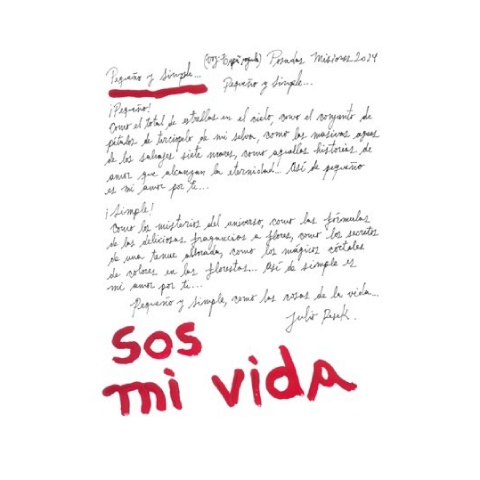 Pequeño y simple... Posadas Misiones 2024
Pequeño y simple...
¡Pequeño!
Como el total de estrellas en el cielo, como el conjunto de
pétalos de terciopelo de mi selva, como las masivas aguas
de los salvajes siete mares, como aquellas historias de
amor que alcanzan la eternidad!... Así de pequeño
es mi amor por ti...
¡Simple!
Como los misterios del universo, como las fórmulas
de las deliciosas fragancias a flores, como los secretos
de una tenue alborada, como los mágicos cócteles
de colores en las florestas... Así de simple es
mi amor por ti...
Pequeño y simple, como las cosas de la vida...
Julio
sos
mi vida